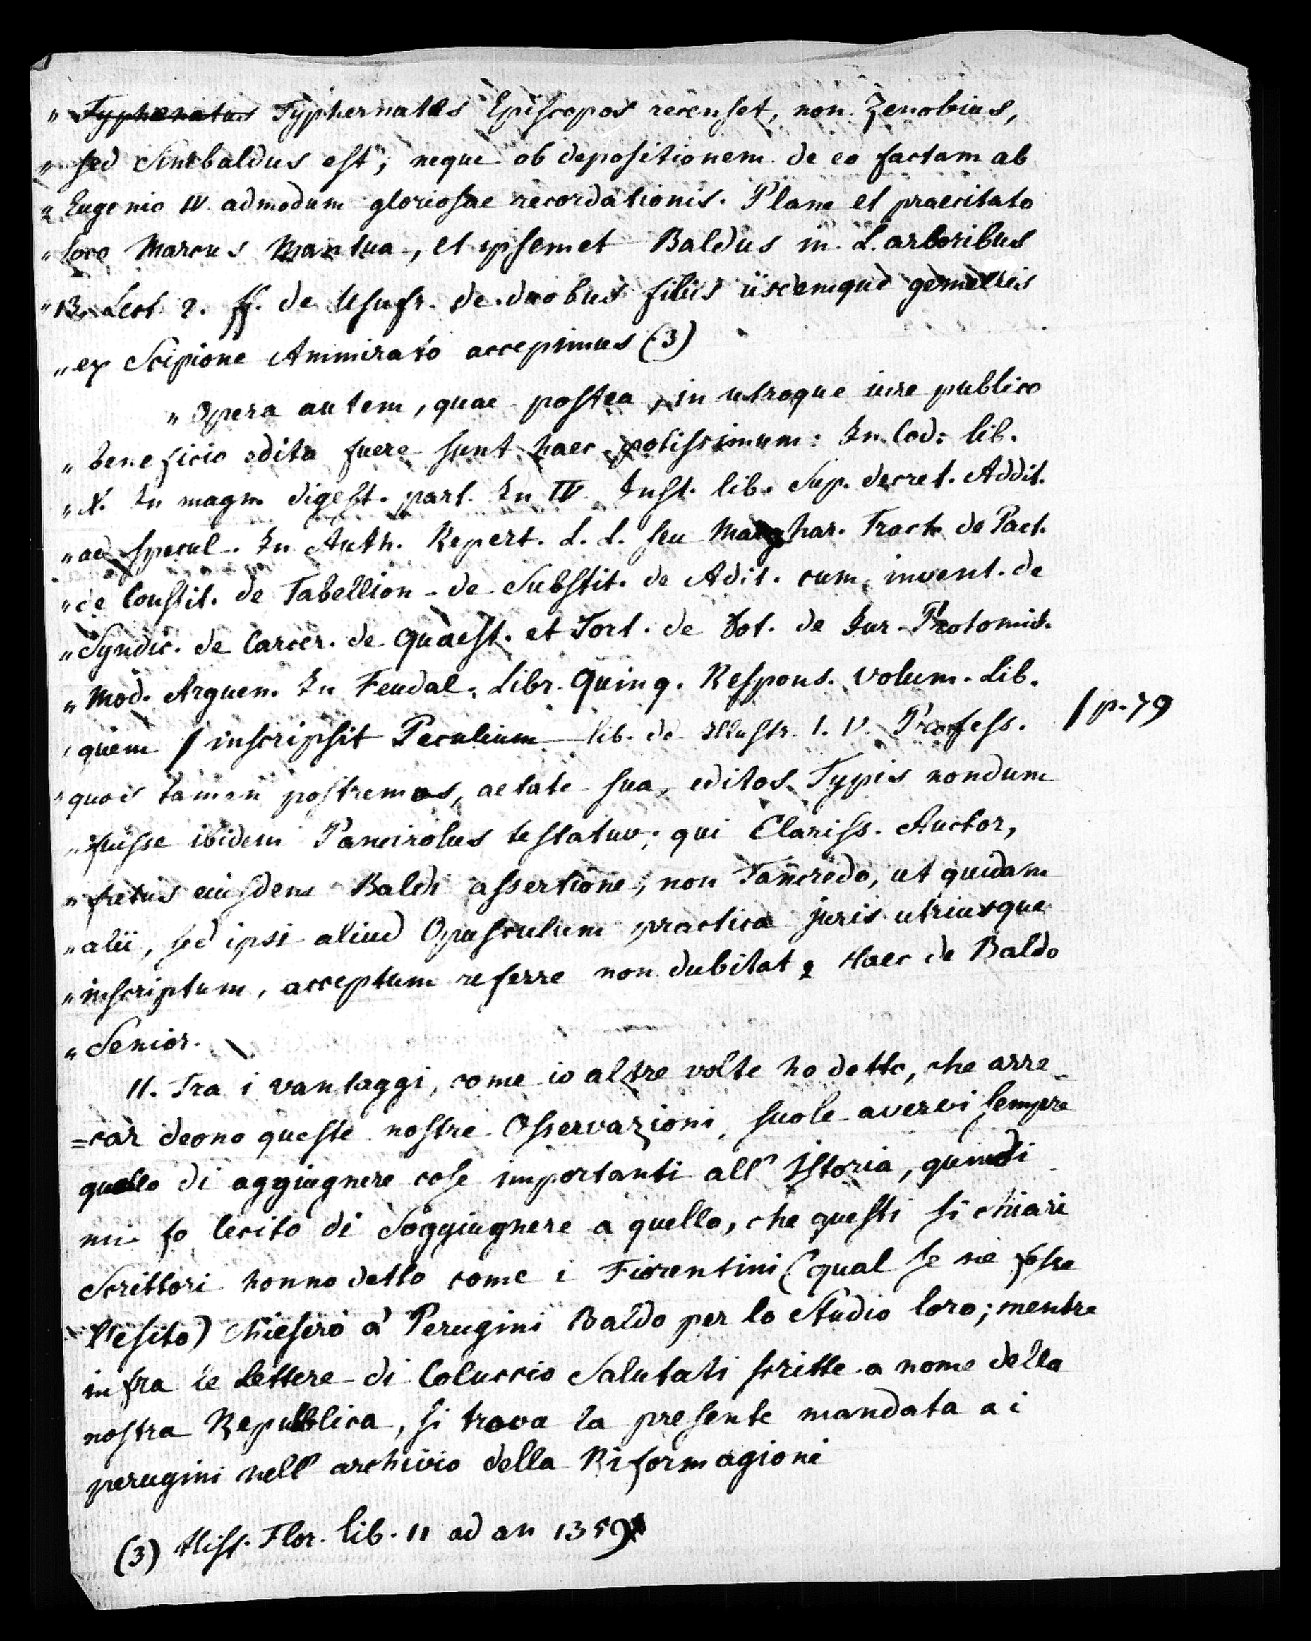 „ Typhernatus Typhernates Episcopos recenset, non Zenobius,
„ sed Sinibaldus est; neque ob depositionem de eo factam ab
„ Eugenio IV. admodum gloriosae recordationis. Plane et praecitato
„ loco Marcus Mantua, et ipsemet Baldus in L. arboribus
„ B. Lect. 2. ff. de Usufr. de duobus filiis iisdemque gemellis
„ ex Scipione Ammirato accepimus (3)
„ Opera autem, quae postea, in utroque iure publico
„ beneficio edita fuere sunt haec potissimum: In Cod: lib.
„ X. In magn. digest. part. In IV Inst. lib. Sup. decret. Addit.
„ ad specul. In Auth. Repert. L. L. seu Marghar. Tract. de Pact.
„ de Constit. de Tabellion. de Substit. de Adit. cum invent. de
„ Syndic. de Carcer. de Quaest. et Tort. de Dot. de Jur. Protomis.
„ Mod. Arguen. In Feudal. Libr. Quinq. Respons. Volum. Lib.
„ quem / inscripsit Peculium lib. de Illustr. I. V. Profess. / p. 79
„ quos tamen postremos, aetate sua, editos Typis nondum
„ fuisse ibidem Pancirolus testatur; qui Clariss. Auctor,
„ fretus eiusdem Baldi assertione, non Tancredo, ut quidam
„ alii, sed ipsi aliud Opusculum practica juris utriusque
„ inscriptum, acceptum referre non dubitat, Haec de Baldo
„ Senior.
II. Tra i vantaggi, come io altre volte ho detto, che arre-
=car deono queste nostre Osservazioni, suole avervi sempre
quello di aggiugnere cose importanti all' Istoria, quindi
mi fo lecito di Soggiugnere a quello, che questi si chiari
Scrittori hanno detto come i Fiorentini (qual se ne fosse
l'esito) chiesero a' Perugini Baldo per lo Studio loro; mentre
in fra le Lettere di Coluccio Salutati scritte a nome della
nostra Repubblica, si trova la presente mandata a i
perugini nell' archivio della Riformagioni
(3) Hist. Flor. lib. 11 ad an 1359